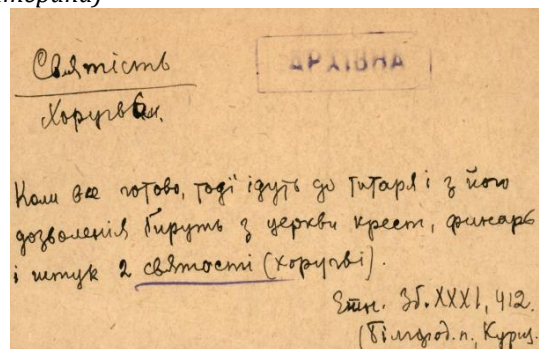 Святість
АРХІВНА
Хоругва
Коли все готово, тоді ідуть до титаря і з його
дозволенія бируть з церкви крест, финарь
і штук 2 святості (хоругві).
Етн. Зб. XXXI, 412.
(Білгород. п., Курщ.